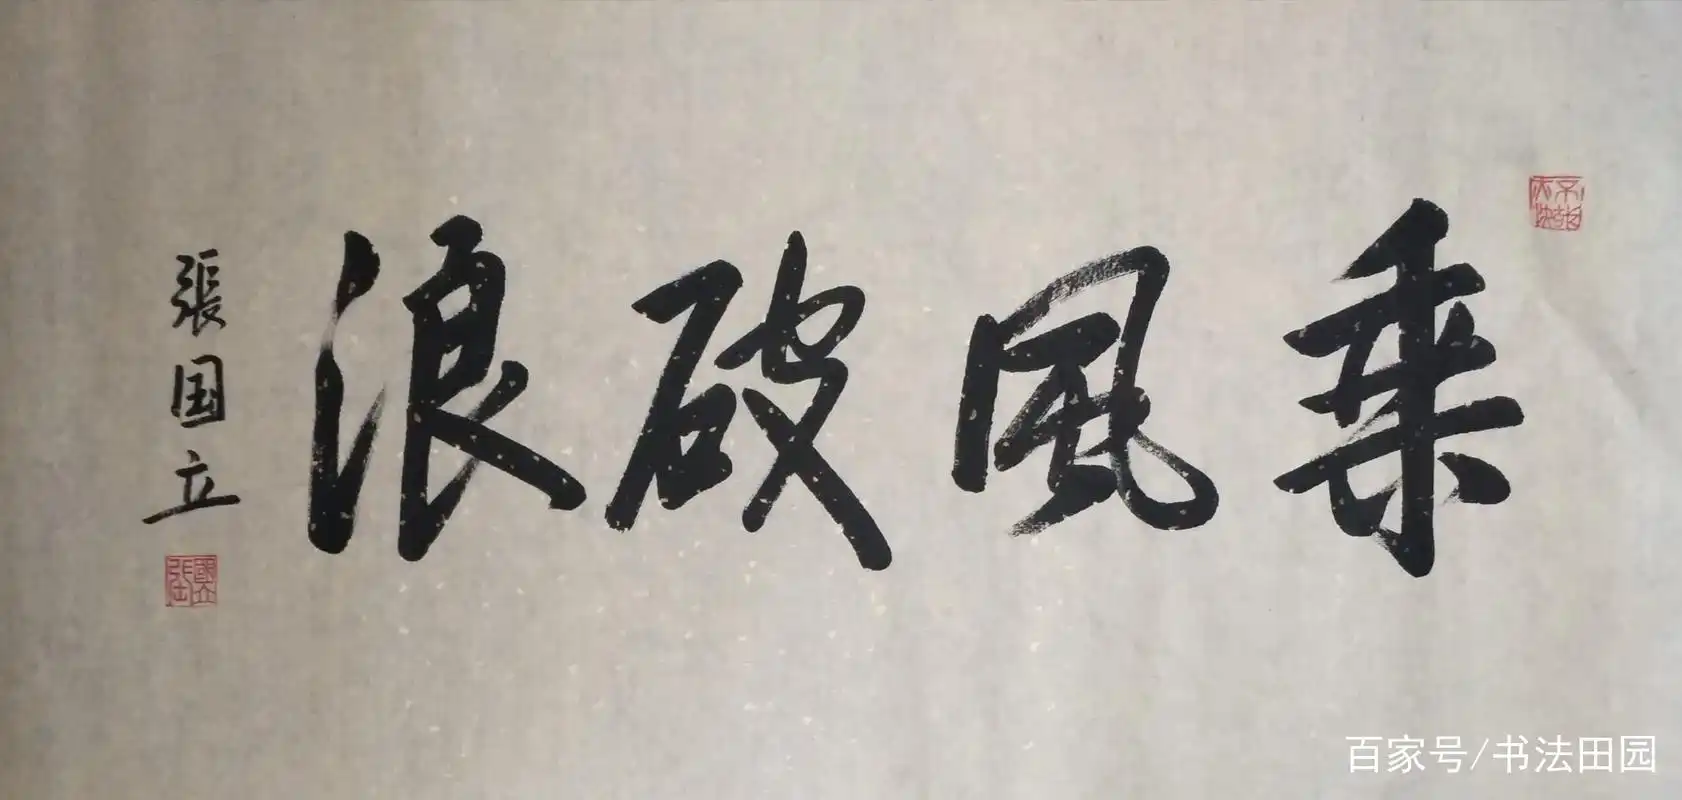 乘风破浪
張国立
百家号/书法田园